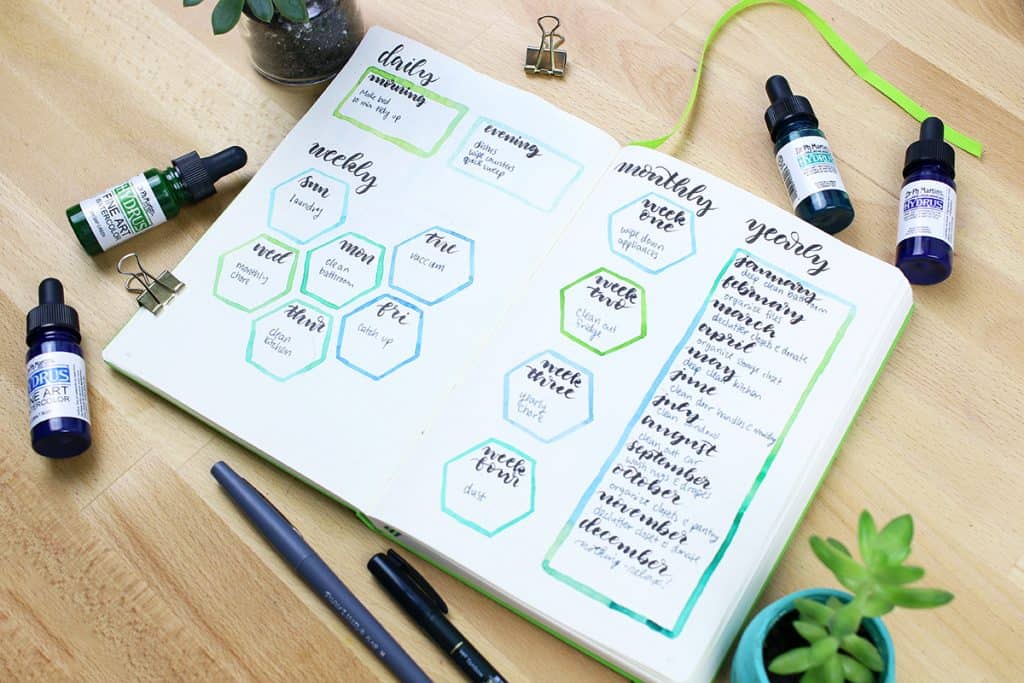 daily
morning
make bed
10 min tidy up
evening
dishes
wipe counters
quick sweep
weekly
sun
laundry
mon
clean
bathroom
tue
vaccum
wed
monthly
chore
thur
clean
kitchen
fri
catch up
monthly
week
one
wipe down
appliances
week
two
clean out
fridge
week
three
yearly
chore
week
four
dust
yearly
january
deep clean bathroom
february
organize files
march
declutter closets & donate
april
organize storage
may
deep clean kitchen
june
clean door handles &
july
clean
august
clean out car
september
wash rugs & drapes
october
organize closets & pantry
november
declutter closet & donate
december
nothing - relax!
Dr. Ph. Martin's
HYDRUS
FINE ART
WATERCOLOR
HYDRUS
FINE ART
WATERCOLOR
Dr. Ph. Martin's
HYDRUS
Dr. Ph. Martin's
HYDRUS